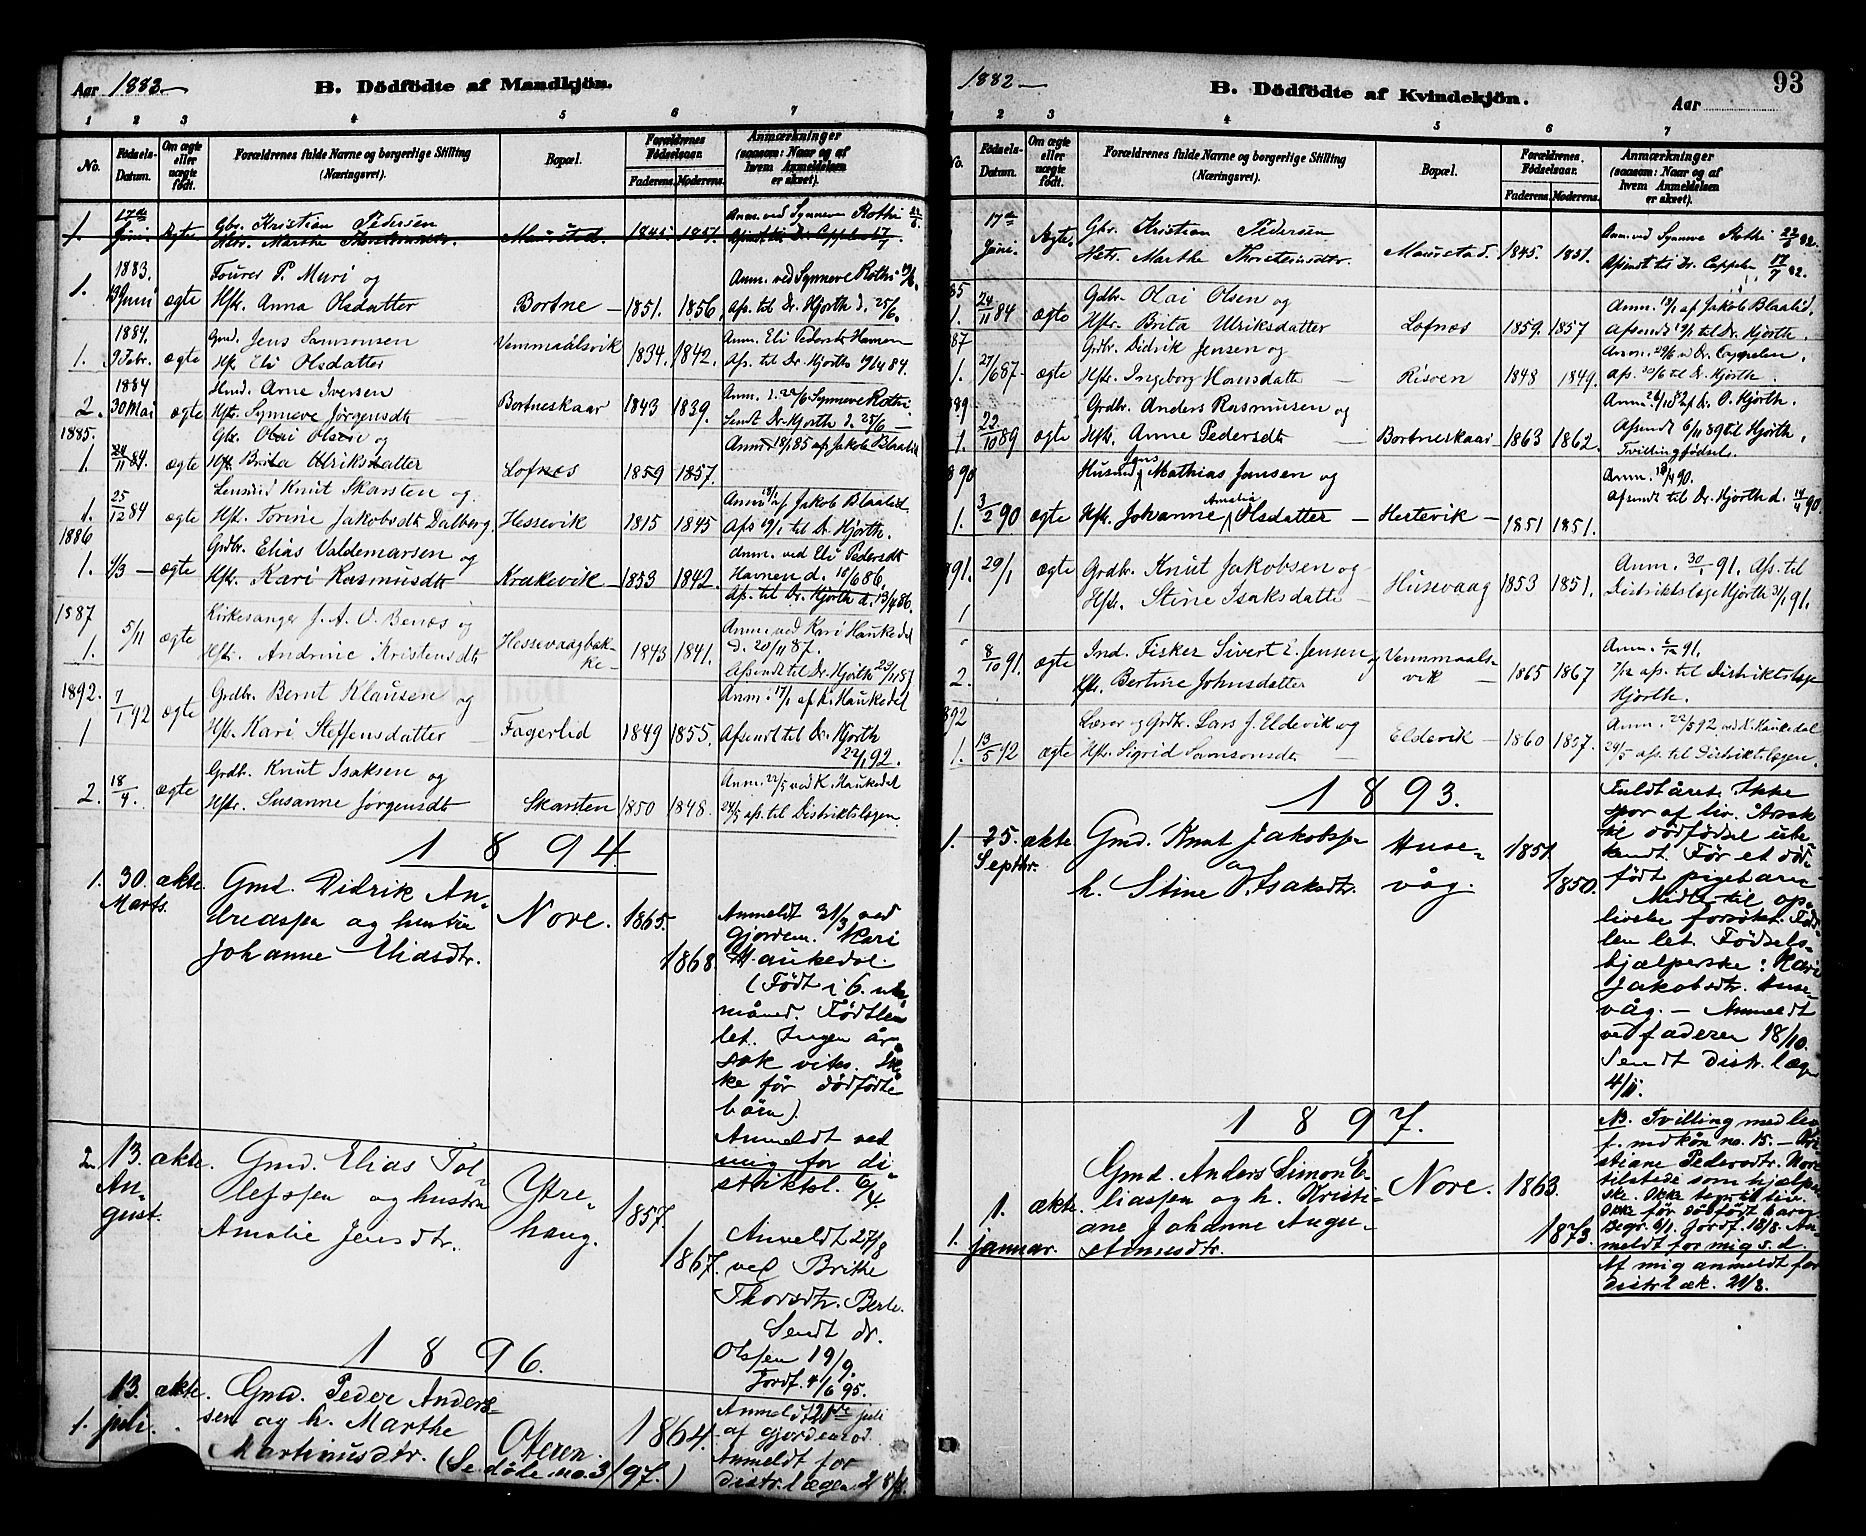 Aar 1883.
B. Dödfödte af Mandkjön.
1 2 3 4 5 6 7
No. Fødsels-Datum. Om ægte eller uægte født. Forældrenes fulde Navne og borgerlige Stilling (Næringsvei). Bopæl. Forældrenes Fødselsaar. Faderens. Moderens. Anmærkninger (saasom: Naar og af hvem Anmeldelsen er skeet).
1. 17de Juni Ægte Gbr. Kristian Pedersen
Hstr. Marthe Thorsteinsdtr. Maurstad. 1845. 1851. Anm. ved Synneve Rothi 22/6
Afsendt til Dr. Cappelen 17/7.
1883.
1. 13 Juni ægte Fourer P. Muri og
Hstr. Anna Olsdatter Bortne 1851. 1856. Anm. ved Synneve Rothi 19/6.
Afs. til Dr. Hjorth d. 25/6.
1884.
1. 9 Febr. ægte Gmd. Jens Samsonsen
Hst. Eli Olsdatter Vemmaalsvik 1834. 1842. Anm. Eli Pedersdt Havnen
Afs. til Dr. Hjorth 19/4 84.
1884
2. 30 Mai ægte Husd. Arne Iversen
Hst. Synneve Jørgensdt Bortneskaar 1843 1839. Anm. d. 22/6 Synneve Rothi
Sendt Dr. Hjorth d. 25/6
1885.
1. 24/11 84. ægte Gbr. Olai Olsen og
Hst. Brita Ulriksdatter Lofnæs 1859 1857. Anm. 13/1 85 af Jakob Blaalid
1. 25/12 84 ægte Lensmd Knut Skarsten og
Hst. Torine Jakobsdt Dalberg. Hessevik 1815 1845 Anm. 13/1 af Jakob Blaalid.
Afs 19/1 til Dr. Hjorth.
1886
1. 4/3 ægte Grdbr. Elias Valdemarsen og
Hst. Kari Rasmusdt Krakevik 1853 1842. Anm. ved Eli Pedersdt
Havnen d. 10/6 86.
Afs. til Dr. Hjorth d. 13/4 86.
1887
1. 5/11 ægte Kirkesanger J. A. V. Benæs og
Hst. Andrine Kristensdt Hessevaagbakke 1843 1841. Anm. ved Kari Haukedal
d. 20/11 87.
Afsendt til Dr. Hjorth 23/11 87
1892.
1 7/1 92 ægte Grdbr. Bernt Klausen og
Hst. Kari Steffensdatter Fagerlid 1849 1855. Anm. 17/1 af K. Haukedal
Afsendt til Dr. Hjorth
22/1 92.
2. 18/4. ægte Grdb. Knut Isaksen og
Hst. Susanne Jørgensdt Skarsten 1850 1848. Anm. 22/5 ved K. Haukedal
24/5 afs. til Distriktslægen
1894.
1. 30. Marts. ækte. Gmd. Didrik An-
dreassen og hustru
Johanne Eliasdtr. Nore. 1865. 1868. Anmeldt 31/3 ved
gjordem. Kari
Haukedal.
(Født i 6. ...
måned. Fødtlen
let. Ingen år-
sak vites. Ik-
ke før dødfødte
børn).
Anmeldt ved
mig for di-
striktsl. 6/4.
2. 13. August. ækte. Gmd. Elias Tol-
lefssen og hustru
Amalie Jensdtr. Ytre-
haug. 1857. 1867. Anmeldt 27/8
ved Brithe
Thorsdtr. Berle.
Sendt dr.
Olssen 19/9.
Jordf. 4/6 95.
1896.
1. 13. juli. ækte. Gmd. Peder Anders-
sen og h. Marthe
Martinusdtr. Oteren. 1864. Anmeldt 21de juli
af gjordemod.
(Se døte no. 3/97.) Anmeldt for
distr.lægen 28/7.
1882
B. Dödfödte af Kvindekjön.
Aar 93
2 3 4 5 6 7
No. Fødsels-Datum. Om ægte eller uægte født. Forældrenes fulde Navne og borgerlige Stilling (Næringsvei). Bopæl. Forældrenes Fødselsaar. Faderens. Moderens. Anmærkninger (saasom: Naar og af hvem Anmeldelsen er skeet).
17de Juni. Ægte. Gbr. Kristian Pedersen
Hstr. Marthe Thorsteinsdtr. Maurstad. 1845. 1851. Anm. ved Synneve Rothi 22/6 82.
Afsendt til Dr. Cappelen 17/7 82.
85
1. 24/11 84 ægte Gdbr. Olai Olsen og
Hstr. Brita Ulriksdatter Lofnæs 1859. 1857 Anm. 13/1 af Jakob Blaalid.
Afsendt 19/1 til Dr. Hjorth.
87
1. 27/6 87. ægte Grdbr. Didrik Jensen og
Hstr. Ingeborg Hansdatt Risøen 1848 1849. Anm. 29/6 ... Dr. Cappelen.
Afs. 30/6 til Dr. Hjorth.
89
1. 23/10 89 ægte Grdbr. Anders Rasmusen og
Hst. Anne Pedersdt Bortneskaar 1863 1862. Anm. 26/10 82 af Dr. O. Hjorth.
Afsendt 6/11 89 til Hjorth.
Tvillingfødsel.
90
1. 3/2 90 ægte Husmd Jens Mathias Jansen og
Hst. Johanne Amalia Olsdatter Hestevik 1851 1851. Anm. 13/4 90.
Afsendt til Dr. Hjorth d. 14/4 90.
91.
1 29/1 ægte Grdbr. Knut Jakobsen og
Hst. Stine Isaksdatt Husevaag 1853 1851. Anm. 30/1 91. Afs. til
Distriktslæge Hjorth 31/1 91.
2. 8/10 91. ægte Ind. Fisker Sivert E. Jensen og
Hst. Bertine Johnsdatter Vemmaals-
vik 1865 1867 Anm. 6/12 91.
7/12 afs. til Distriktslæge
Hjorth.
892
1. 13/5 92 ægte Lærer og Grdbr. Lars J. Eldevik og
Hst. Sigrid Samsonsdt Eldevik 1860 1857. Anm. 22/5 92 ved K. Haukedal
24/5 afs. til Distriktslægen.
1893.
1. 25. Septbr. ækte Gmd. Knut Jakobsen
og
h. Stine Isaksdtr. Huse-
våg. 1851. 1850. Fuldtåret. Ikke
spor af liv. Årsak
til dødfødsel ube-
kendt. Før et død-
født pigebarn.
Midler til op-
livelse forsøkt. Fød-
len let. Fødsels-
hjælperske: Kari
Jakobsdtr. Huse-
våg. — Anmeldt
ved faderen 18/10.
Sendt distr. læge
4/11.
1897.
1. 1. januar. ækte. Gmd. Anders Simon E-
liassen og h. Kristi-
ane Johanne Augu-
stinusdtr. Nore. 1863. 1873. NB. Tvilling med lev.
f. mdkøn no. 15. — Kri-
stiane Pedersdtr. Nore
tilstede som hjælper-
ske. Ikke tegn til liv.
Ikke før dødfødt barn.
Begr. 6/1. Jordf. 18/8. An-
meldt for mig s. d.
Af mig anmeldt for
distr.læk. 21/8.